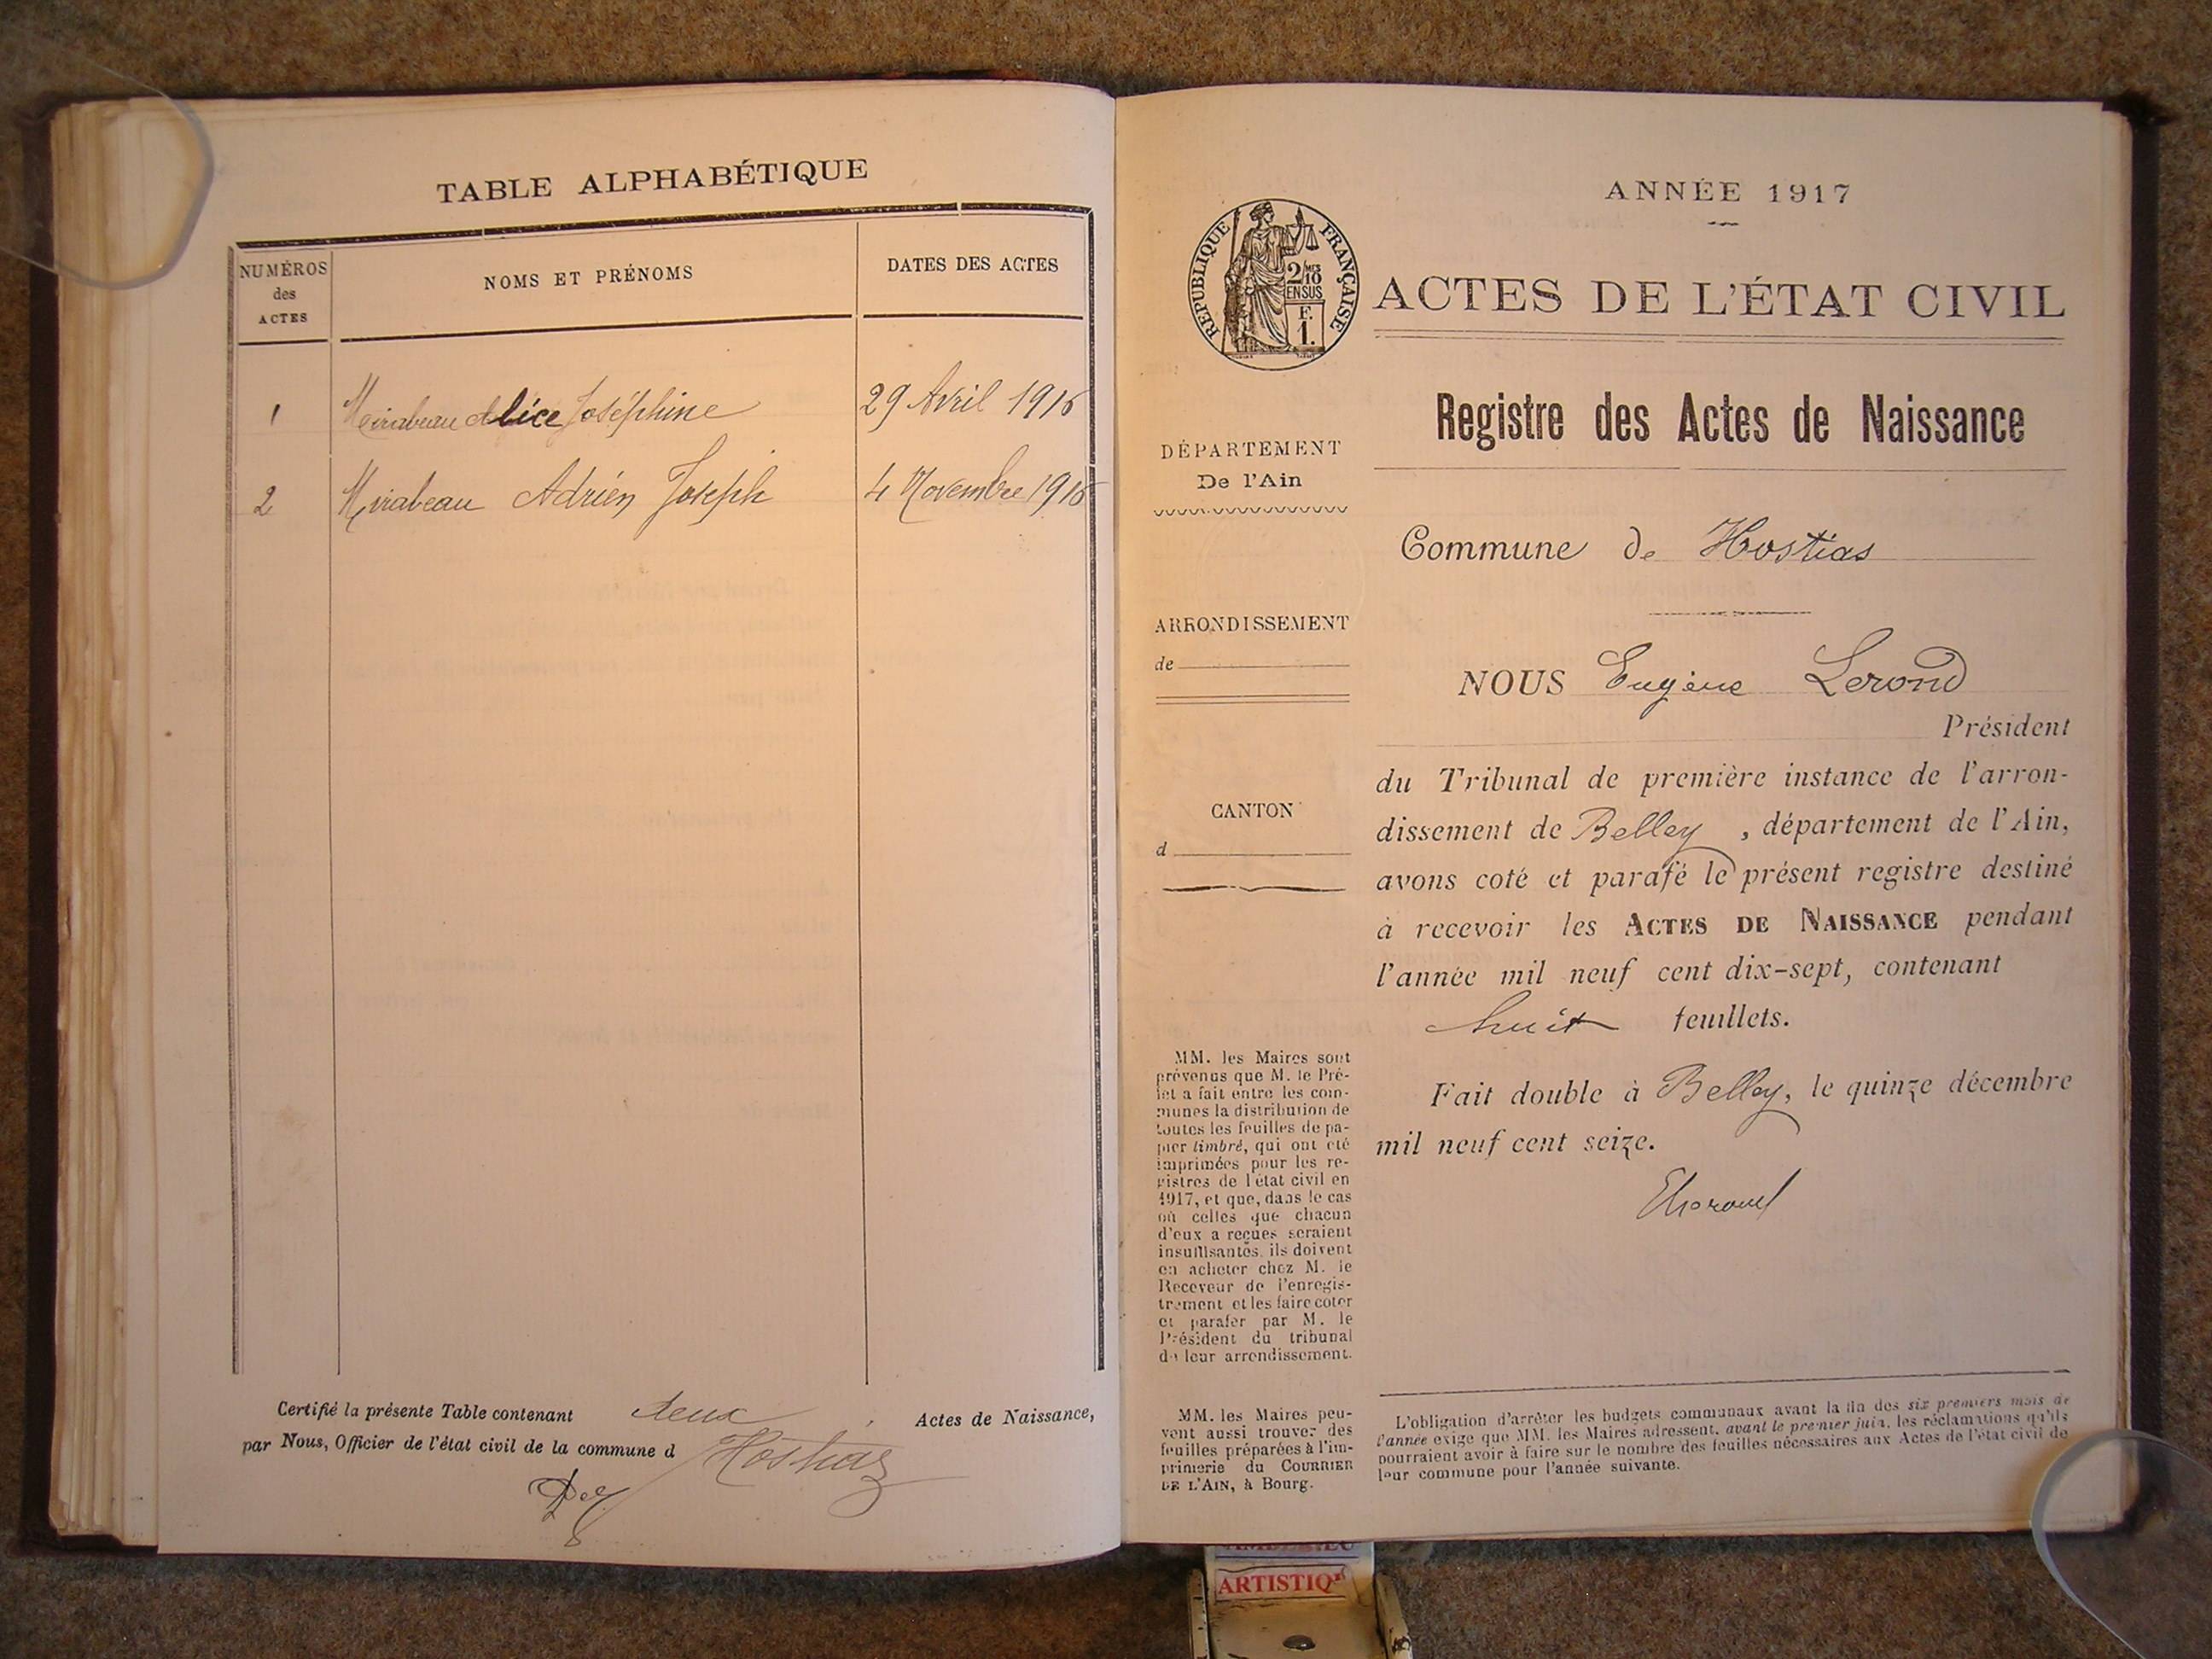 TABLE ALPHABÉTIQUE
NUMÉROS
des
ACTES
NOMS ET PRÉNOMS
DATES DES ACTES
1 Mirabeau Alice Joséphine 29 Avril 1916
2 Mirabeau Adrien Joseph 4 Novembre 1916
Certifié la présente Table contenant deux Actes de Naissance,
par Nous, Officier de l'état civil de la commune d Hostiaz
ANNÉE 1917
RÉPUBLIQUE FRANÇAISE
2/MES
10
EN SUS
F.
1.
ACTES DE L'ÉTAT CIVIL
Registre des Actes de Naissance
DÉPARTEMENT
De l'Ain
Commune de Hostias
ARRONDISSEMENT
de
CANTON
d
NOUS Eugène Lerond
Président
du Tribunal de première instance de l'arron-
dissement de Belley, département de l'Ain,
avons coté et parafé le présent registre destiné
à recevoir les ACTES DE NAISSANCE pendant
l'année mil neuf cent dix-sept, contenant
huit feuillets.
Fait double à Belley, le quinze décembre
mil neuf cent seize.
MM. les Maires sont
prévenus que M. le Pré-
fet a fait entre les com-
munes la distribution de
toutes les feuilles de pa-
pier timbré, qui ont été
imprimées pour les re-
gistres de l'état civil en
1917, et que, dans le cas
où celles que chacun
d'eux a reçues seraient
insuffisantes, ils doivent
en acheter chez M. le
Receveur de l'enregis-
trement et les faire coter
et parafer par M. le
Président du tribunal
de leur arrondissement.
MM. les Maires peu-
vent aussi trouver des
feuilles préparées à l'im-
primerie du COURRIER
DE L'AIN, à Bourg.
L'obligation d'arrêter les budgets communaux avant la fin des six premiers mois de
l'année exige que MM. les Maires adressent, avant le premier juin, les réclamations qu'ils
pourraient avoir à faire sur le nombre des feuilles nécessaires aux Actes de l'état civil de
leur commune pour l'année suivante.
ARTISTIQ